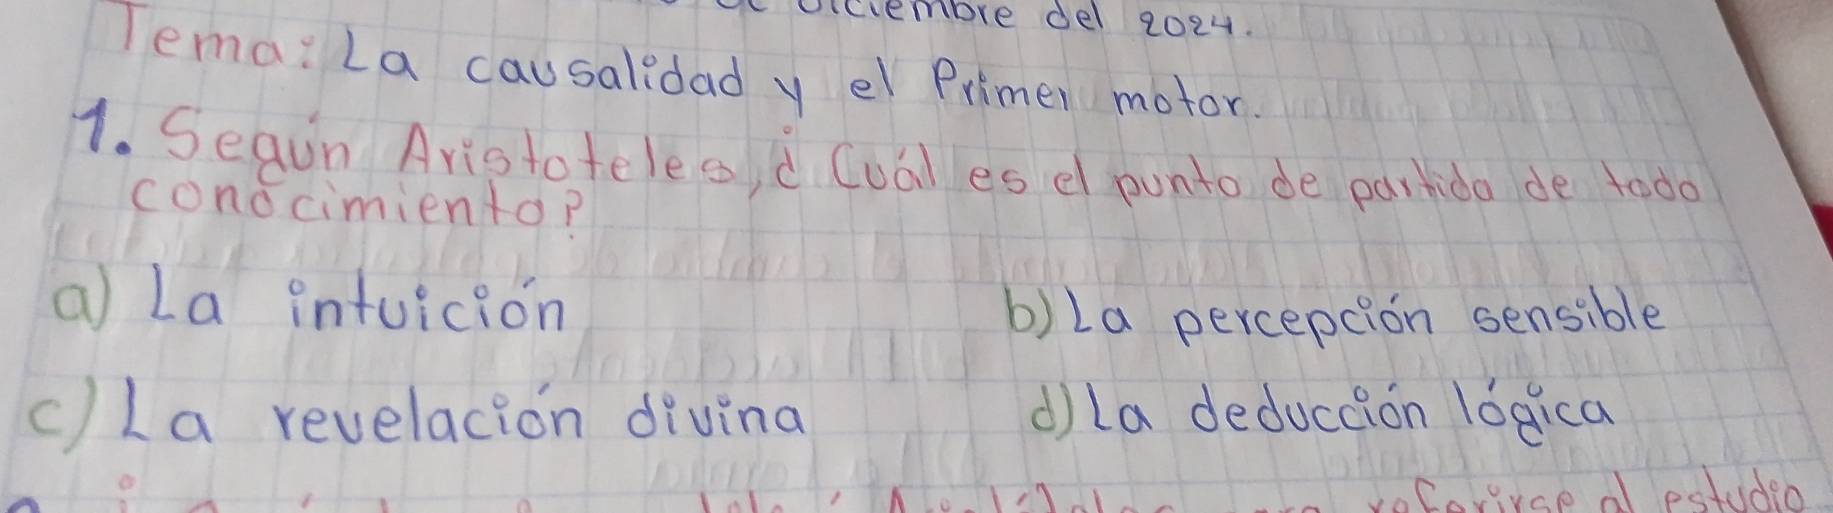 diciembre del 2024.
Tema: La causalidad y el Primer motor.
1. Según Aristoteles, ¿Cuál es el punto de partida de todo
conocimiento?
a) La intuición
b) La percepción sensible
c) La revelación divina
d) La deducción lógica
referirse al estudio